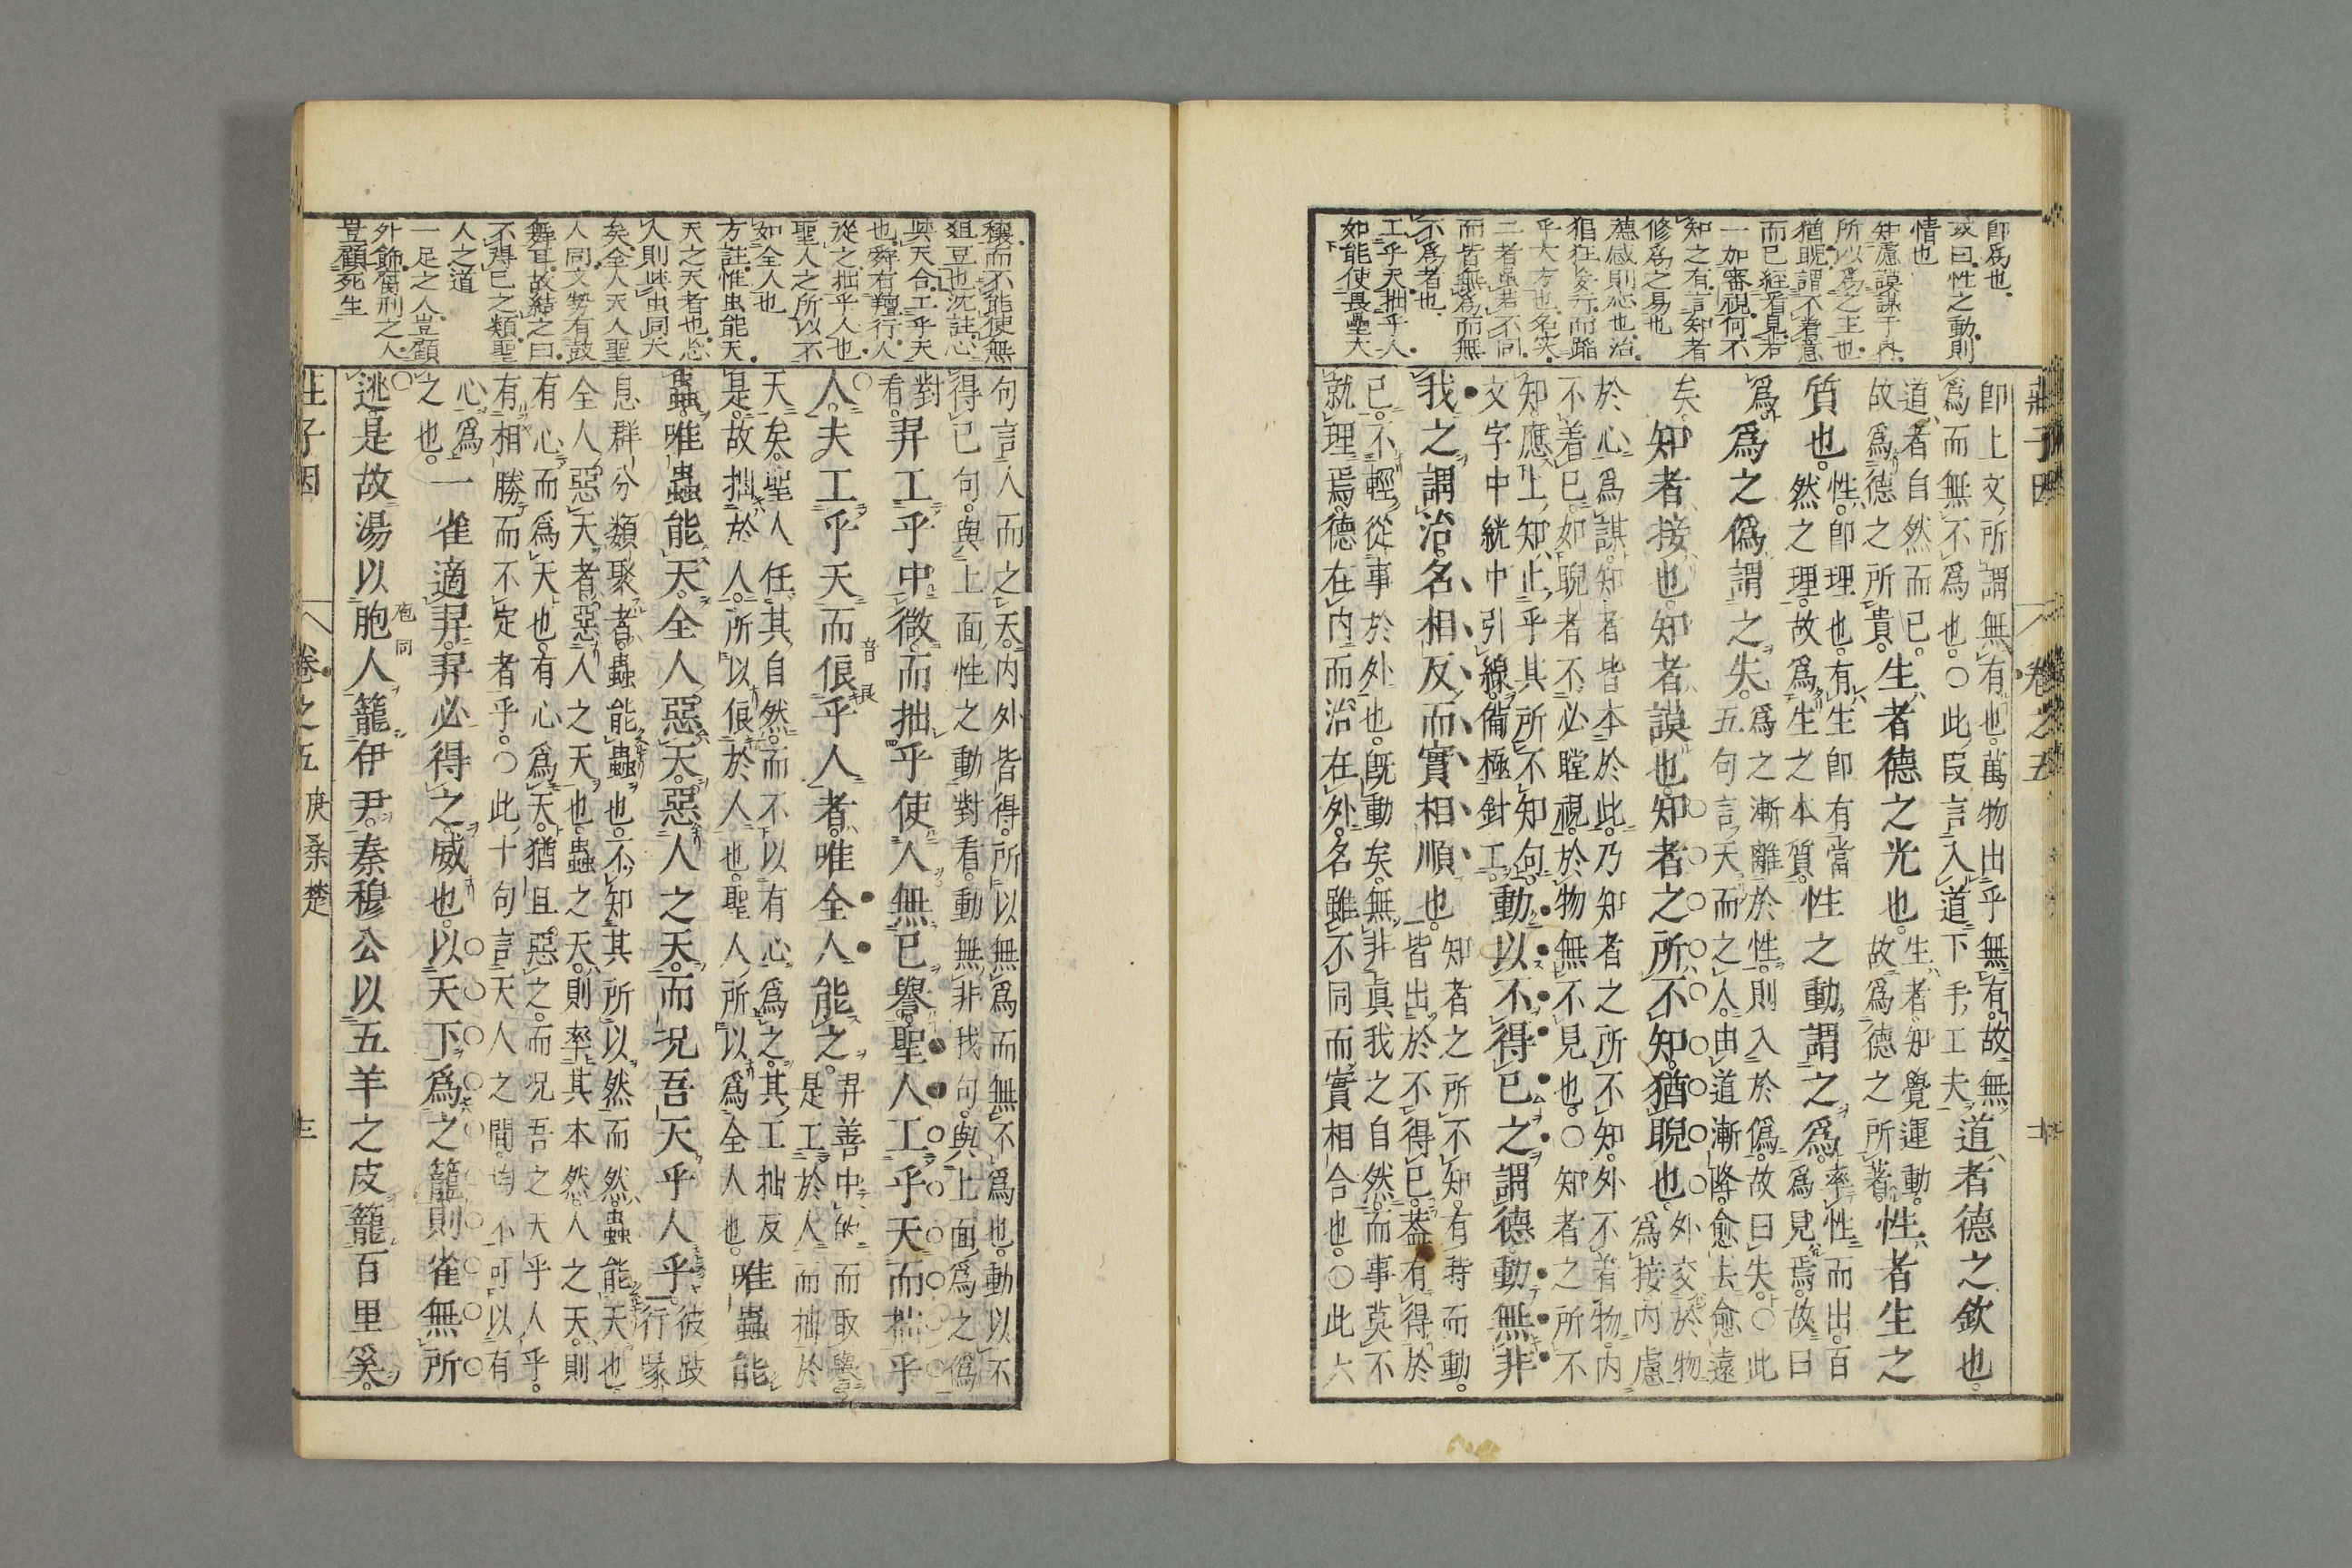 莊子因　卷之五
即爲也
或曰性之動則
情也
知慮謨謀于內
所以爲之主也
猶睨謂不着意
而已經看見若
一加審視何不
知之有言知者
修爲之易也
德感則心也治
猖狂妄行而蹈
乎大方也名矣
二者虽若不同
而皆無爲而無
不爲者也
工乎天拙乎人
如能使畏壘大
即上文所謂無有也萬物出乎無有故無
爲而無不爲也○此段言入道下手工夫
道者德之欽也
道者自然而已
故爲德之所貴
生者德之光也
生者知覺運動
故爲德之所著
性者生之
質也
性即理也有生即有當
然之理故爲生之本質
性之動謂之爲
率性而出百
爲見焉故曰
爲
爲之偽謂之失
爲之漸離於性則入於偽故曰失○此
五句言天而之人由道漸降愈去愈遠
矣
知者接也知者謨也知者之所不知猶睨也
外交於物
爲接內慮
於心爲謀知者皆本於此乃知者之所不知外不着物內
不着已如睨者不必瞠視於物無不見也○知者之所不
知應上知止乎其所不知句
文字中絖中引線備極針工
動以不得已之謂德動無非
我之謂治名相反而實相順也
知者之所不知有時而動
皆出於不得已蓋有得於
已不輕從事於外也既動矣無非眞我之自然而事莫不
就理焉德在内而治在外名雖不同而實相合也○此六
穰而不能使無
俎豆也沈註心
與天合工乎天
也舜有羶行人
從之拙乎人也
聖人之所以不
如全人也
方註惟虫能天
天之天者也忘
人則與虫同天
矣全人天人聖
人同文勢有鼓
舞耳故結之曰
不得已之類聖
人之道
一足之人豈顧
外飾胥刑之人
豈顧死生
句言人而之天内外皆得所以無爲而無不爲也動以不
得已句與上面性之動對看動無非我句與上面爲之偽
對
看
羿工乎中微而拙乎使人無已譽聖人工乎天而拙乎
人夫工乎天而俍乎人者唯全人能之
音
㫰
羿善中的而取譽
是工於人而拙於
天矣聖人任其自然而不以有心爲之其工拙反
是故拙於人所以俍於人也聖人所以爲全人也
唯蟲能
蟲唯蟲能天全人惡天惡人之天而況吾天乎人乎
彼跂
行喙
息群分類聚者蟲能蟲也不知其所以然而然蟲能天也
全人惡天者惡人之天也蟲之天則率其本然人之天則
有心而爲天也有心爲天猶且惡之而况吾之天乎人乎
有相勝而不定者乎○此十句言天人之間均不可以有
心爲
之也
一雀適羿羿必得之威也以天下爲之籠則雀無所
逃是故湯以胞人籠伊尹秦穆公以五羊之皮籠百里奚
庖同
庄子因　卷之五　庚桑楚　三